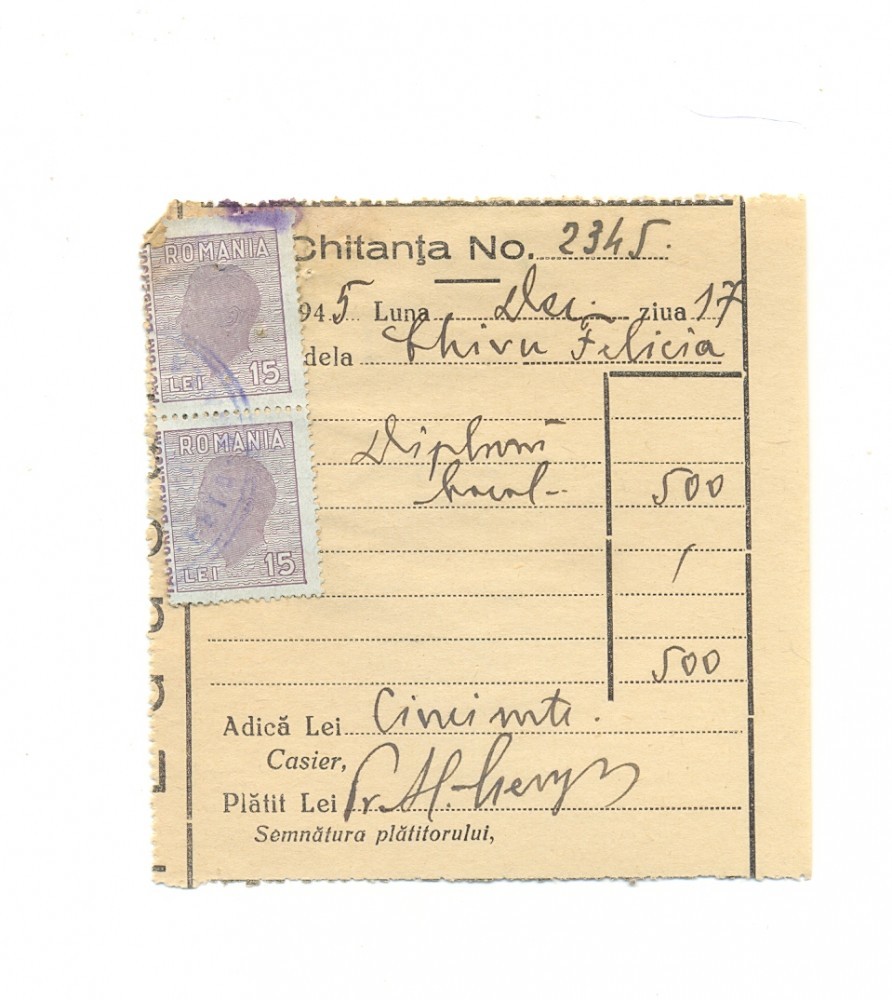 Chitanța No. 2345.
945 Luna Dec. ziua 17
dela Chivu Felicia
Diplomă
bacal- 500
/
500
Adică Lei Cincisute.
Casier,
Plătit Lei
Semnătura plătitorului,
ROMANIA
LEI 15
ROMANIA
LEI 15